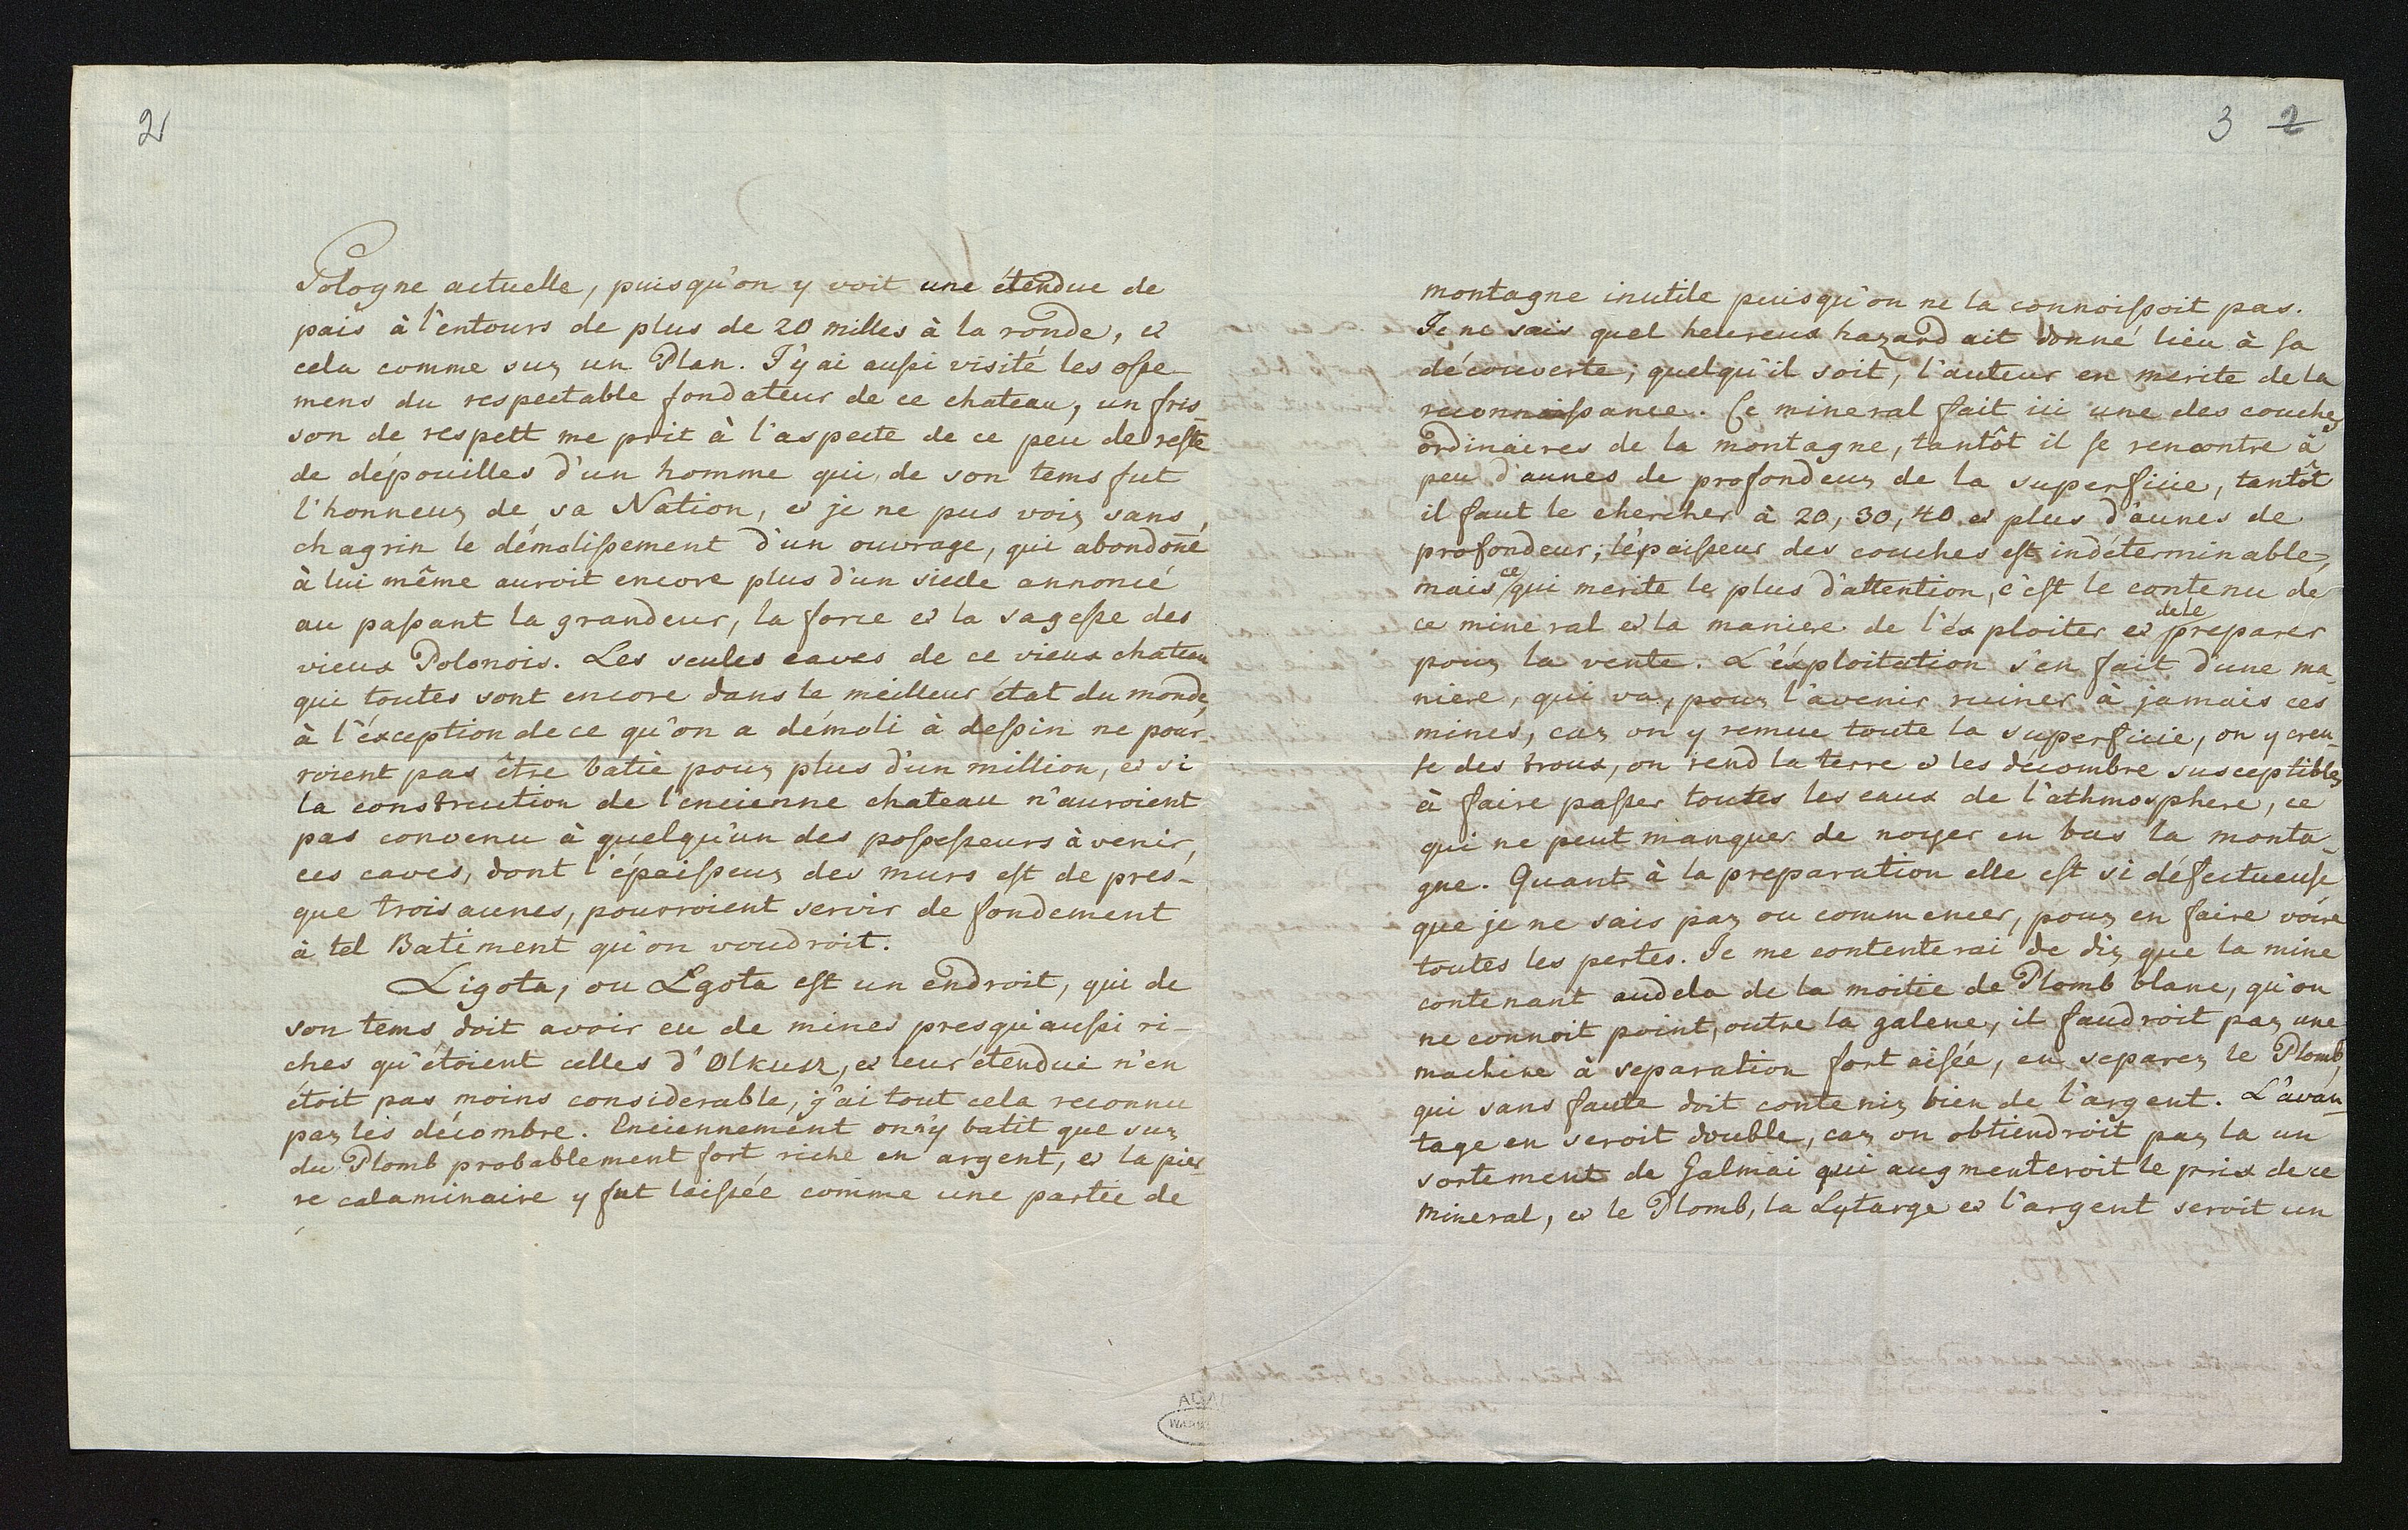 2
Pologne actuelle, puisqu'on y voit une étendue de
païs à l'entours de plus de 20 milles à la ronde, et
cela comme sur un Plan. J'y ai aussi visité les osse-
mens du respectable fondateur de ce chateau, un fris-
son de respett me prit à l'aspecte de ce peu de reste
de dépouilles d'un homme qui de son tems fut
l'honneur de sa Nation, et je ne pus voir sans
chagrin le démolissement d'un ouvrage, qui abondoñé
à lui même auroit encore plus d'un siecle annoncé
au passant la grandeur, la force et la sagesse des
vieux Polonois. Les seules caves de ce vieux chateau
qui toutes sont encore dans le meilleur état du monde,
à l'éxception de ce qu'on a démoli à dessin ne pour-
roient pas être batie pour plus d'un million, et si
la construction de l'encienne chateau n'auroient
pas convenu à quelqu'un des possesseurs à venir,
ces caves, dont l'épaisseur des murs est de pres-
que trois aunes, pourroient servir de fondement
à tel Batiment qu'on voudroit.
Ligota, ou Lgota est un endroit, qui de
son tems doit avoir eu de mines presqu'aussi ri-
ches qu'étoient celles d'Olkusz, et leur étendue n'en
étoit pas moins considerable, j'ai tout cela reconnu
par les décombre. Enciennement on n'y batit que sur
du Plomb probablement fort riche en argent, et la pier
re calaminaire y fut laissée comme une partie de
3 2
montagne inutile puisqu'on ne la connoissoit pas.
Je ne sais quel heureux hazard ait donné lieu à sa
découverte; quelqu'il soit, l'auteur en merite de la
reconnaissance. Ce mineral fait ici une des couches
ordinaires de la montagne, tantôt il se rencontre à
peu d'aunes de profondeur de la superficie, tantôt
il faut le chercher à 20, 30, 40 et plus d'aunes de
profondeur; l'épaisseur des couches est indéterminable,
mais ce qui merite le plus d'attention, c'est le contenu de
ce mineral et la maniere de l'éxploiter et de le preparer
pour la vente. L'éxploitation s'en fait d'une ma-
niere, qui va, pour l'avenir ruiner à jamais ces
mines, car on y remue toute la superficie, on y creu-
se des troux, on rend la terre et les decombre susceptibles
à faire passer toutes les eaux de l'athmosphere, ce
qui ne peut manquer de noyer en bas la monta-
gne. Quant à la preparation elle est si défectueuse
que je ne sais par ou commencer, pour en faire voire
toutes les pertes. Je me contenterai de dir que la mine
contenant audela de la moitie de Plomb blanc, qu'on
ne connoit point, outre la galene, il faudroit par une
machine à separation fort aisée, en separer le Plomb,
qui sans faute doit contenir bien de l'argent. L'avan-
tage en seroit double, car on obtiendroit par la un
sortement de Galmai qui augmenteroit le prix de ce
mineral, et le Plomb, la Lytarge et l'argent seroit un